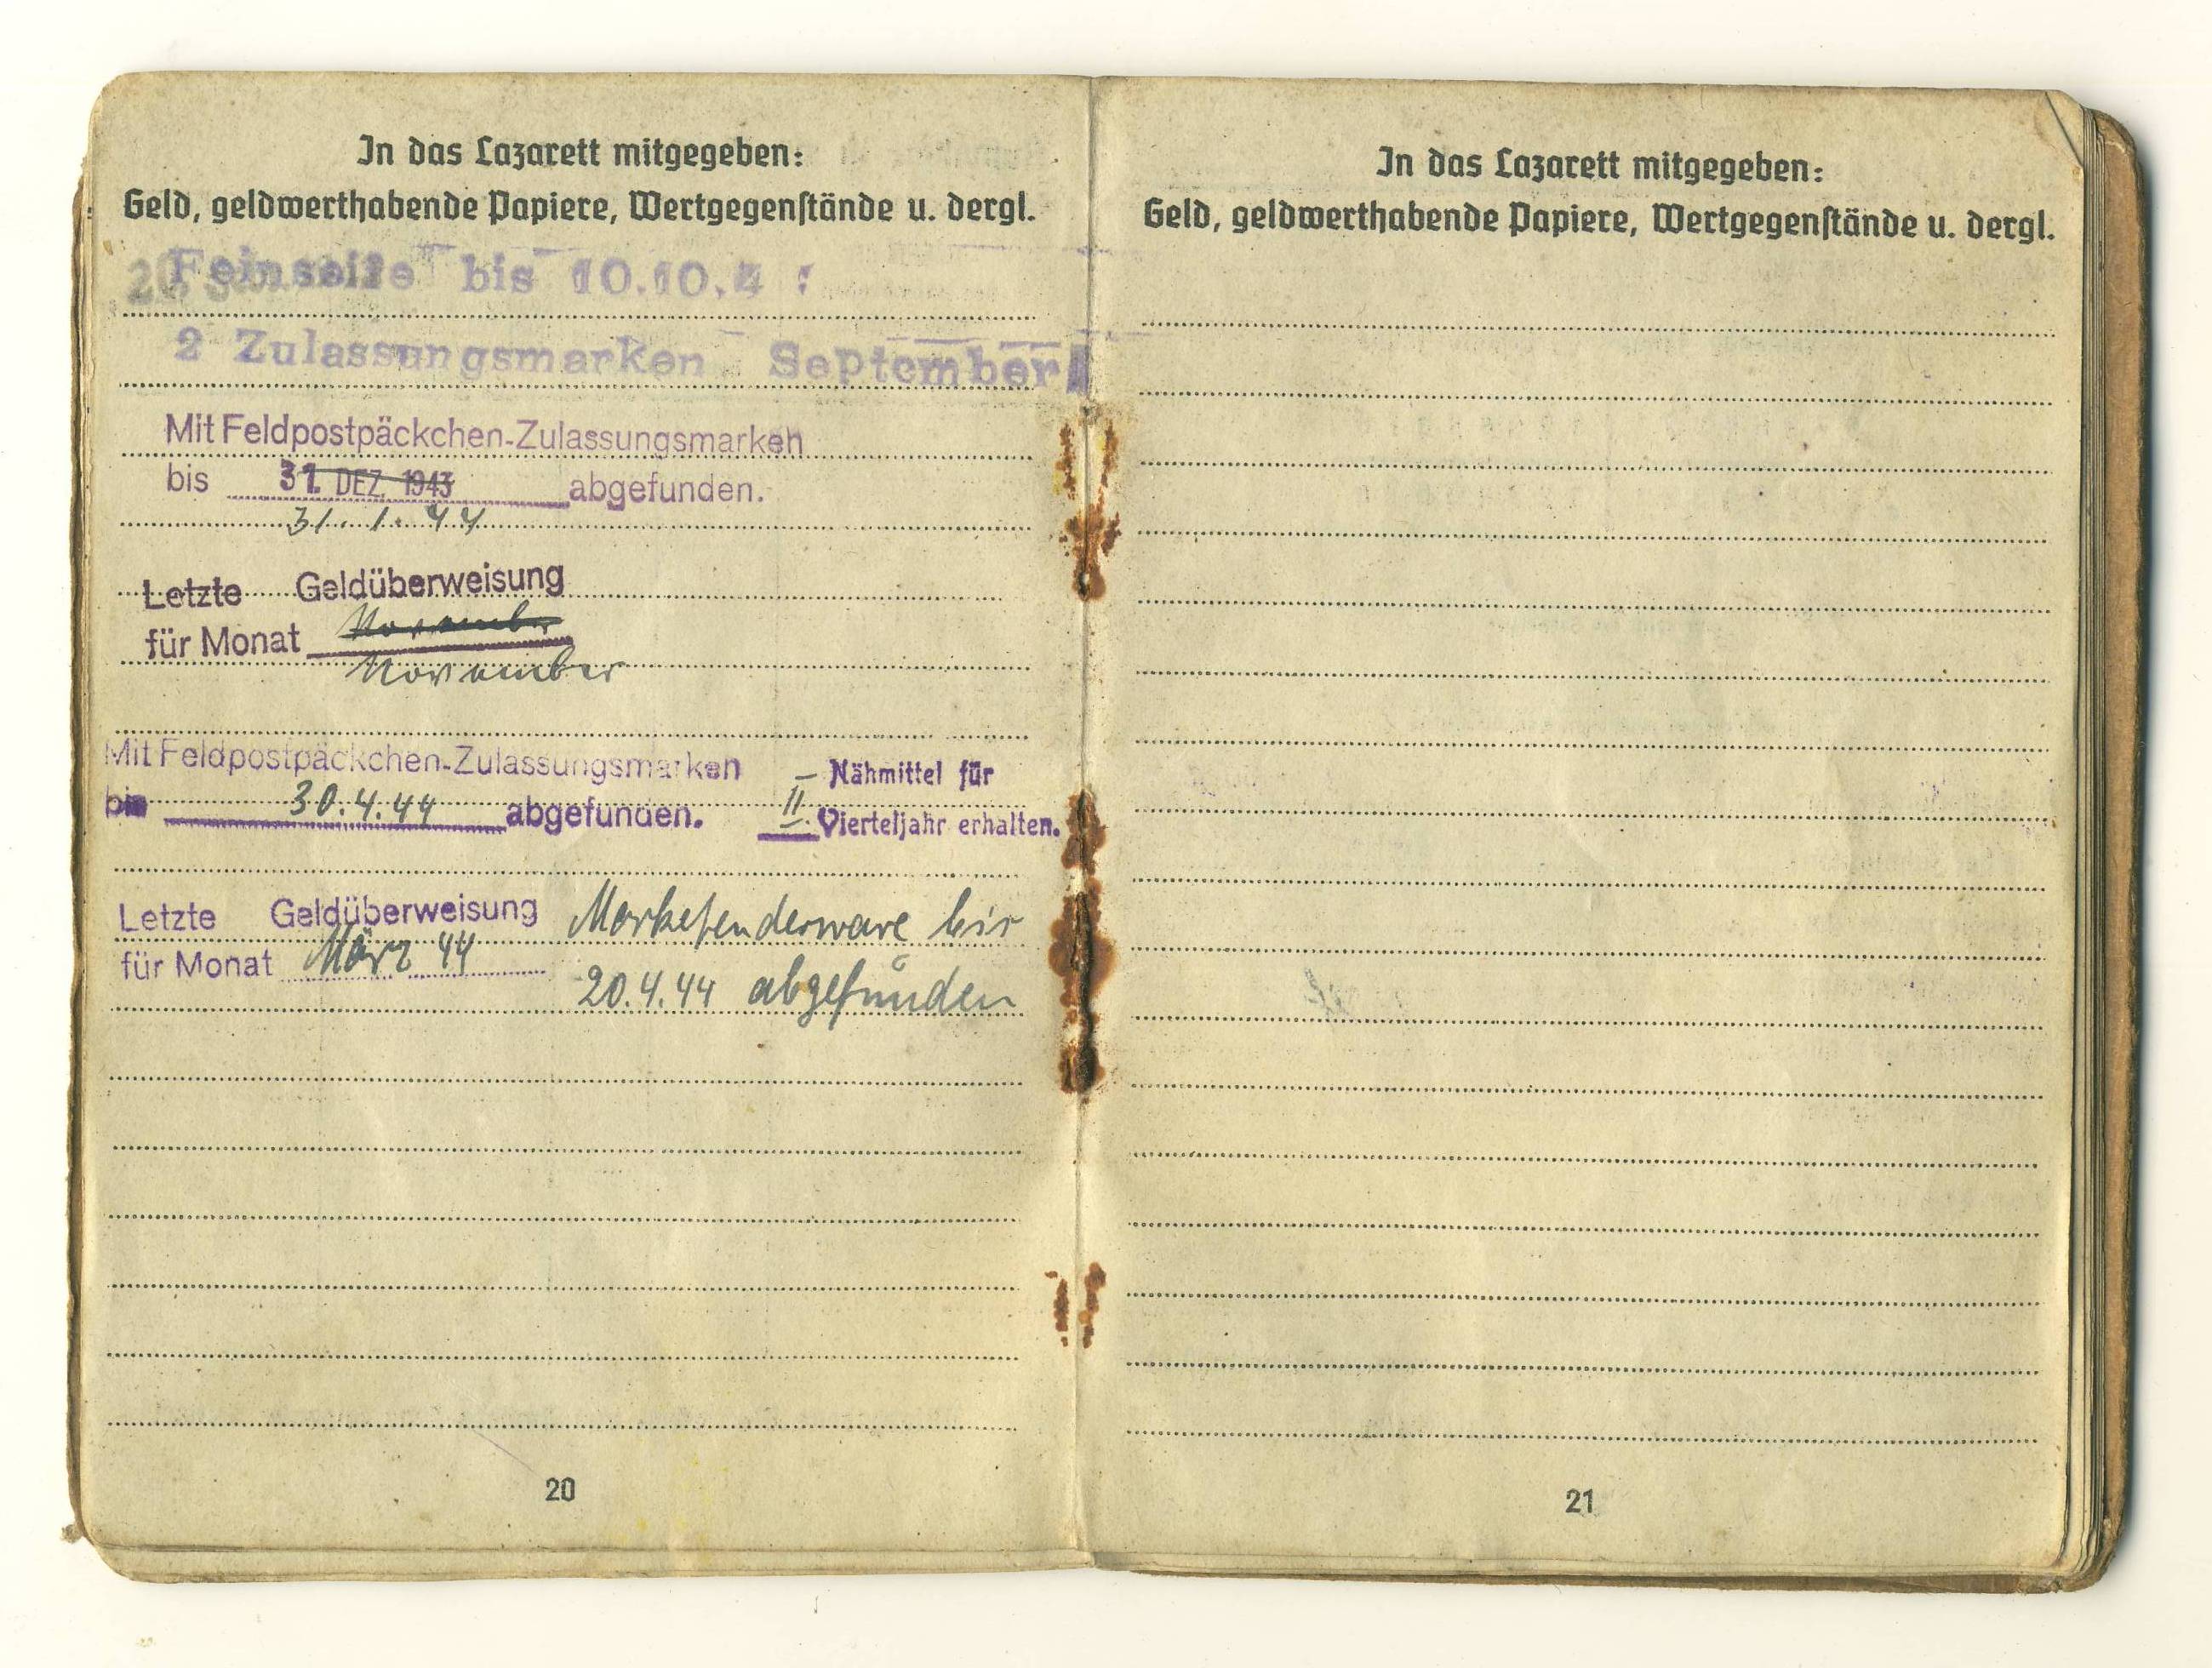 In das Lazarett mitgegeben:
Geld, geldwerthabende Papiere, Wertgegenstände u. dergl.
Feinseife bis 10.10.4
2 Zulassungsmarken September
Mit Feldpostpäckchen-Zulassungsmarken
bis 31. DEZ. 1943 abgefunden.
31.1.44
Letzte Geldüberweisung
für Monat November
November
Mit Feldpostpäckchen-Zulassungsmarken
bis 30.4.44 abgefunden.
Nähmittel für
II. Vierteljahr erhalten.
Letzte Geldüberweisung
für Monat März 44
Marketenderware bis
20.4.44 abgefunden
20
In das Lazarett mitgegeben:
Geld, geldwerthabende Papiere, Wertgegenstände u. dergl.
21